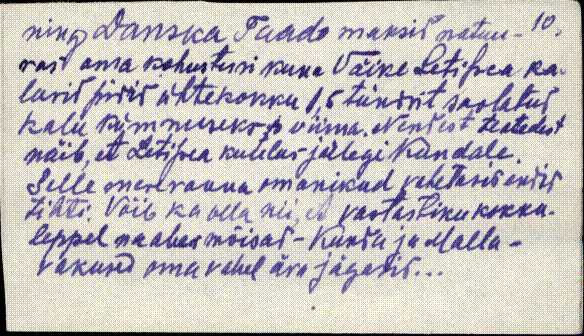 10.
ning Danska Taado maksid natuu-
ras oma kohustusi kuna Väike Letipea ka-
lurid pidid ühtekokku 1,5 tündrit soolatud
kalu kümniseks viima. Nendest teatedest
näib, et Letipea kuulus jällegi Kundale.
Selle mereranna omanikud vahetasid endid
tihti. Võib ka olla nii, et vastastiku kokku-
leppel naaber mõisad - Kunda ja Malla -
rakused oma vahel ära jagasid...